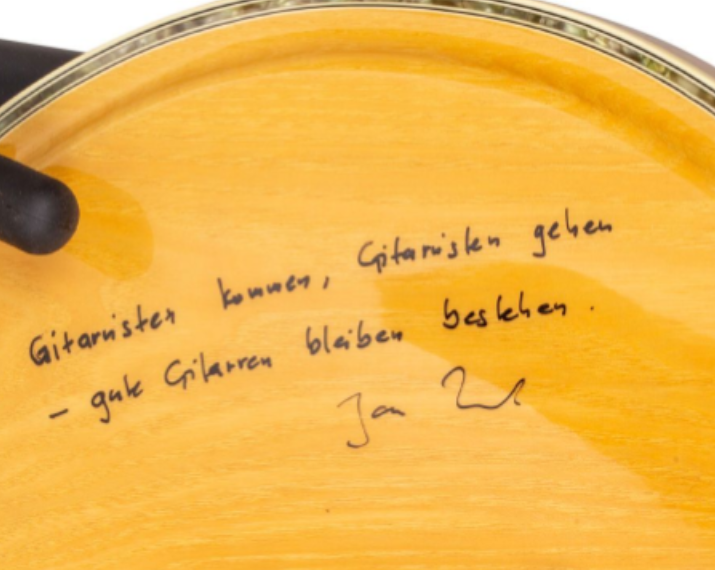 Gitarristen kommen, Gitarristen gehen
- gute Gitarren bleiben bestehen.
Jan